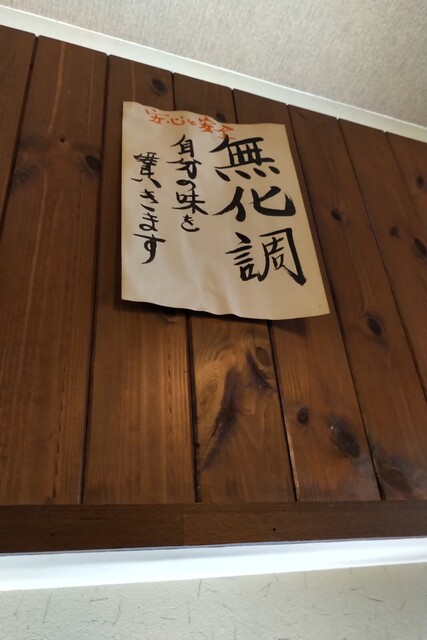 安心と安全
無化調
自分の味を
貫きます